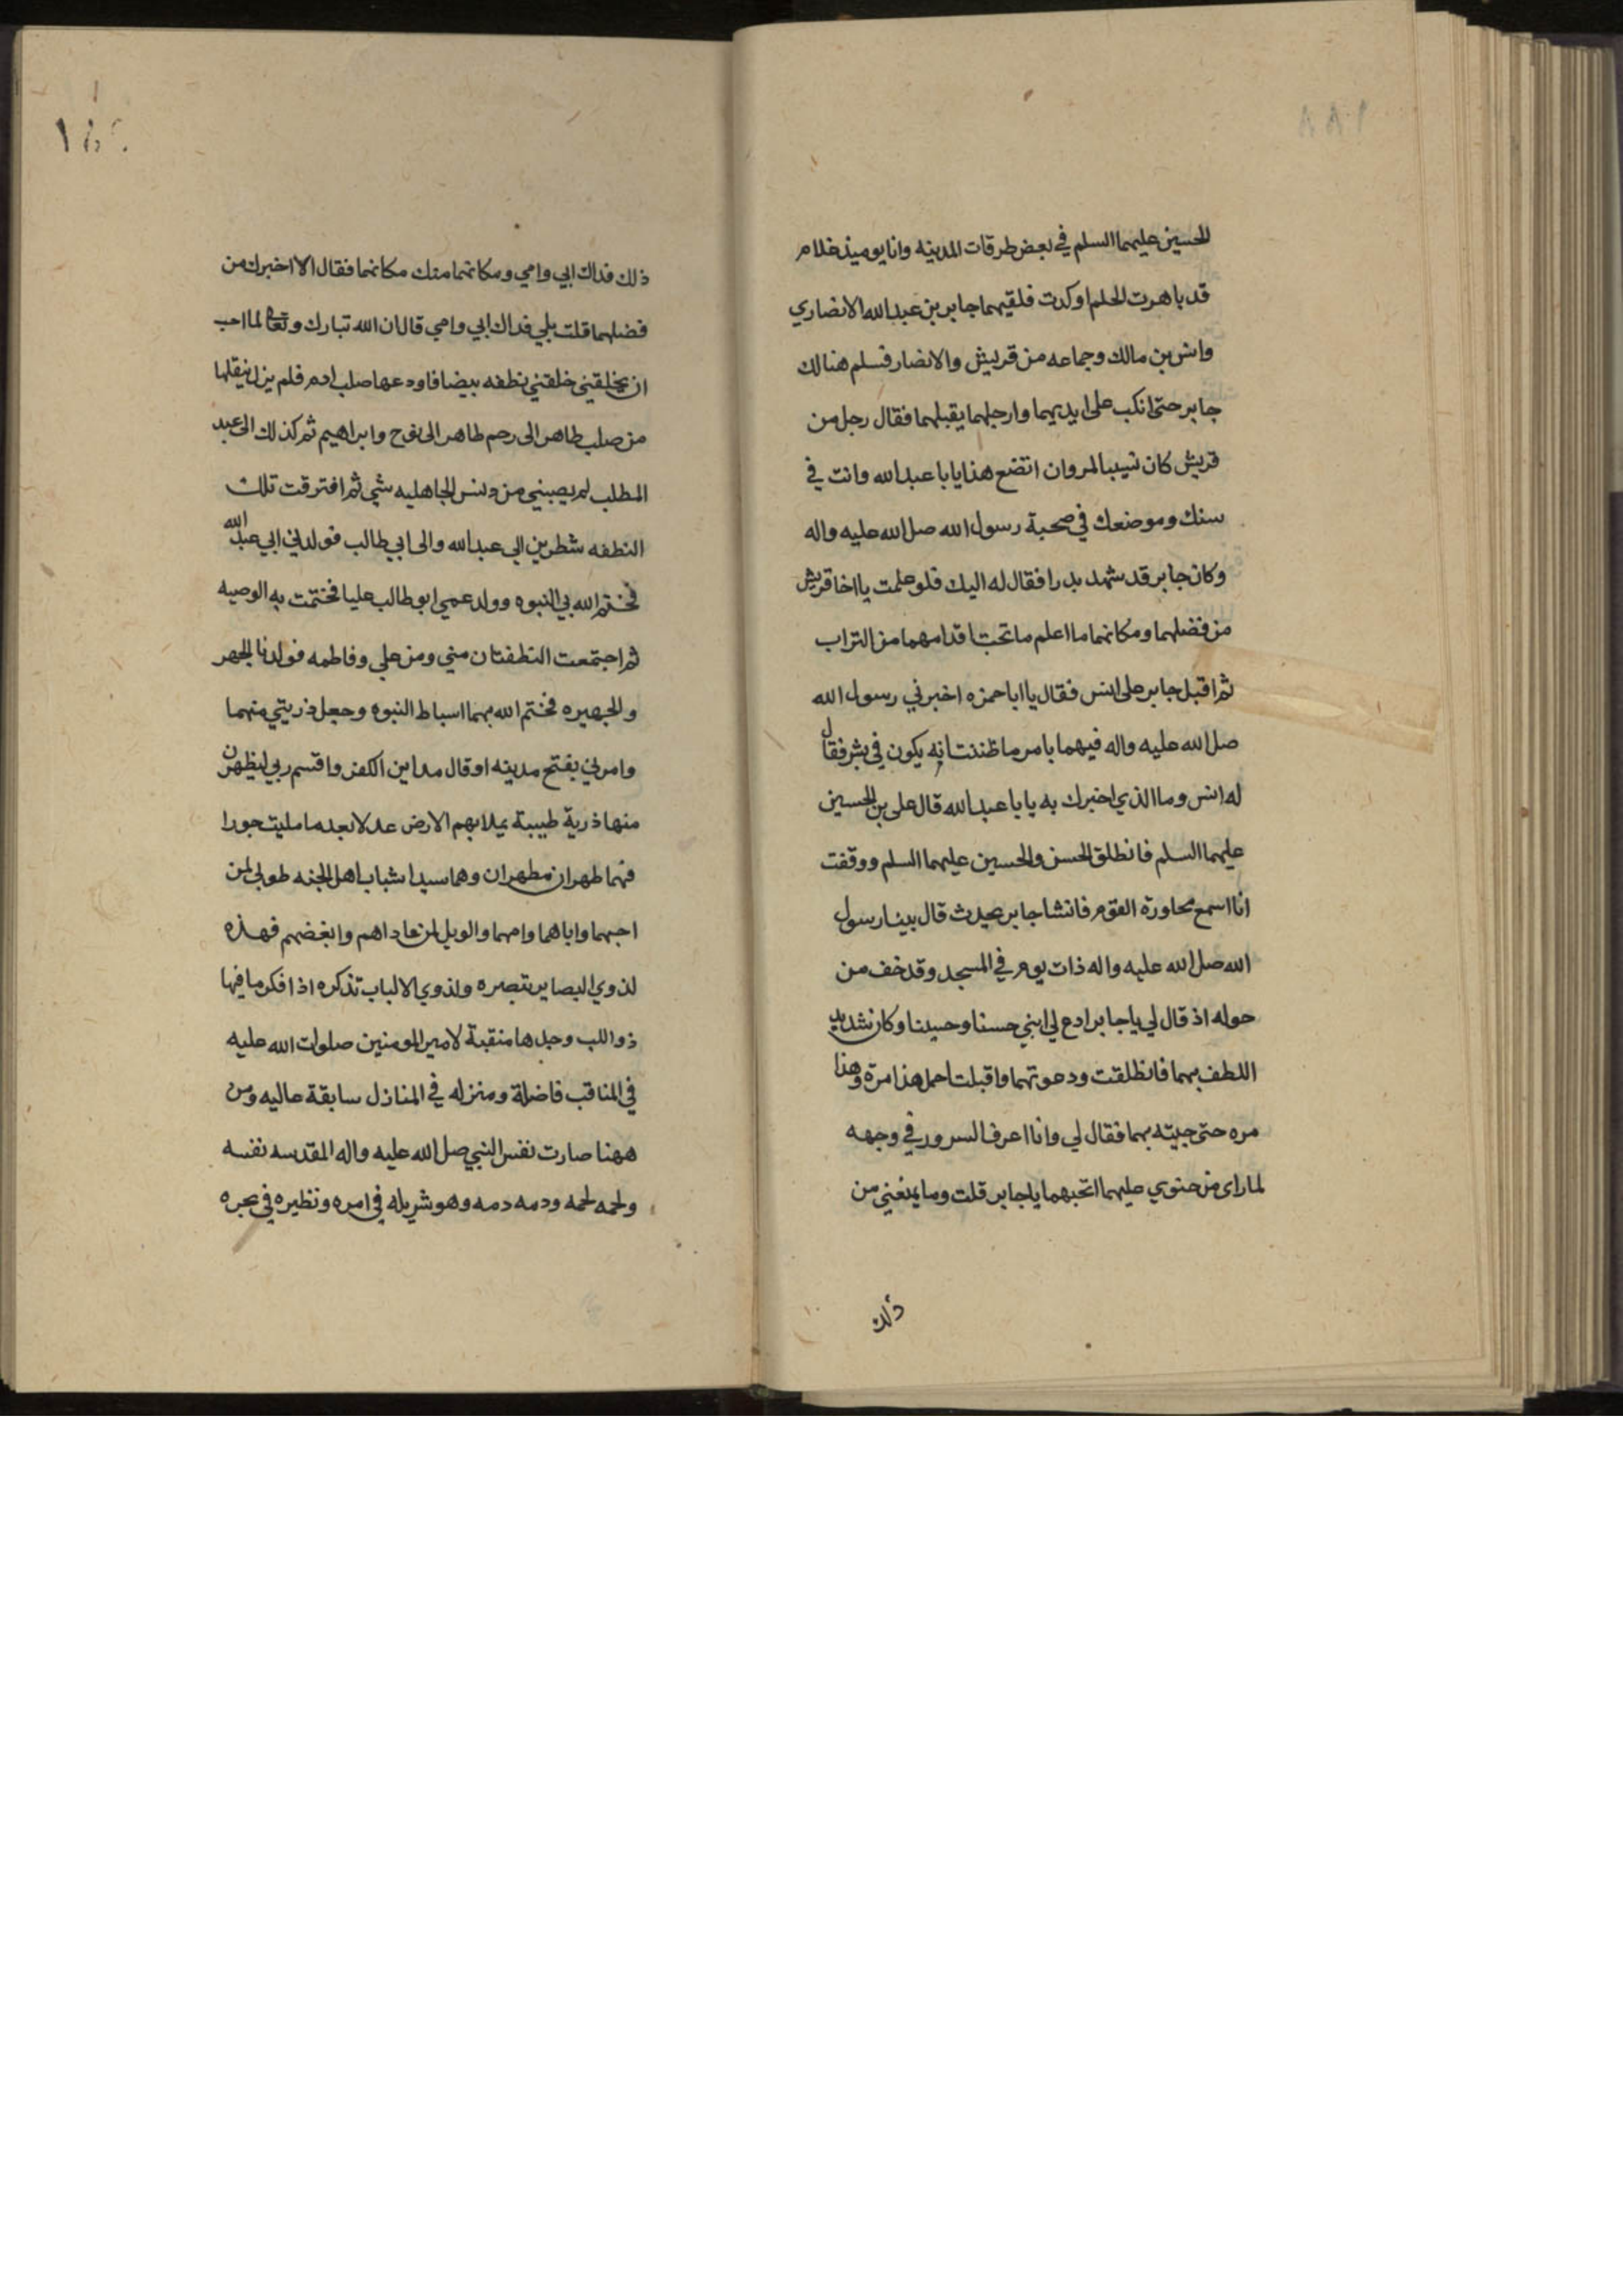 الحسين عليهما السلم في بعض طرقات المدينه وانا يوميذ غلام
قد ناهزت الحلم او كدت فلقيهما جابر بن عبد الله الانصاري
وانس بن مالك وجماعه من قريش والانصار فسلم هنالك
جابر حتى انكب على ايديهما وارجلهما يقبلهما فقال رجل من
قريش كان نسيبا لمروان اتضع هذا يابا عبد الله وانت في
سنك وموضعك في صحبة رسول الله صل الله عليه واله
وكان جابر قد شهد بدرا فقال له اليك فلو علمت يا اخا قريش
من فضلهما ومكانهما ما اعلم ما تحت اقدامهما من التراب
ثم اقبل جابر على انس فقال يا ابا حمزه اخبرني رسول الله
صل الله عليه واله فيهما بامر ما ظننت انه يكون في بشر فقال
له انس وما الذي اخبرك به يابا عبد الله قال على بن الحسين
عليهما السلم فانطلق الحسن والحسين عليهما السلم ووقفت
انا اسمع محاورة القوم فانشا جابر يحدث قال بينا رسول
الله صل الله عليه واله ذات يوم في المسجد وقد خف من
حوله اذ قال لي يا جابر ادع لي ابني حسنا وحسينا وكان شديد
اللطف بهما فانطلقت ودعوتهما واقبلت احمل هذا مرة وهذا
مره حتى جيته بهما فقال لي وانا اعرف السرور في وجهه
لما راى من حنوي عليهما اتحبهما يا جابر قلت وما يمنعني من
ذلك
ذلك فداك ابي وامي ومكانهما منك مكانهما فقال الا اخبرك من
فضلهما قلت بلي فداك ابي وامي قال ان الله تبارك وتعالى لما احب
ان يخلقني خلقني نطفه بيضا فاودعها صلب ادم فلم يزل ينقلها
من صلب طاهر الى رحم طاهر الى نوح وابراهيم ثم كذلك الى عبد
المطلب لم يصبني من دنس الجاهليه شي ثم افترقت تلك
النطفه شطرين الي عبد الله والى ابي طالب فولدني ابي عبد الله
فختم الله بي النبوه وولد عمي ابو طالب عليا فختمت به الوصيه
ثم اجتمعت النطفتان مني ومن علي وفاطمه فولدنا الجهر
والجهيره فختم الله بهما اسباط النبوه وجعل ذريتي منهما
وامرني بفتح مدينه او قال مداين الكفر واقسم ربي ليظهرن
منها ذرية طيبة يملا بهم الارض عدلا بعد ما مليت جورا
فهما طهران مطهران وهما سيدا شباب اهل الجنه طوبى لمن
احبهما واباهما وامهما والويل لمن عاداهم وابغضهم فهذه
لذوي البصاير تبصره ولذوي الالباب تذكره اذا فكر ما فيها
ذو اللب وجدها منقبة لامير المومنين صلوات الله عليه
في المناقب فاضلة ومنزله في المنازل سابقة عاليه ومن
ههنا صارت نفس النبي صل الله عليه واله المقدسه نفسه
ولحمه لحمه ودمه دمه وهو شريكه في امره ونظيره في نجره